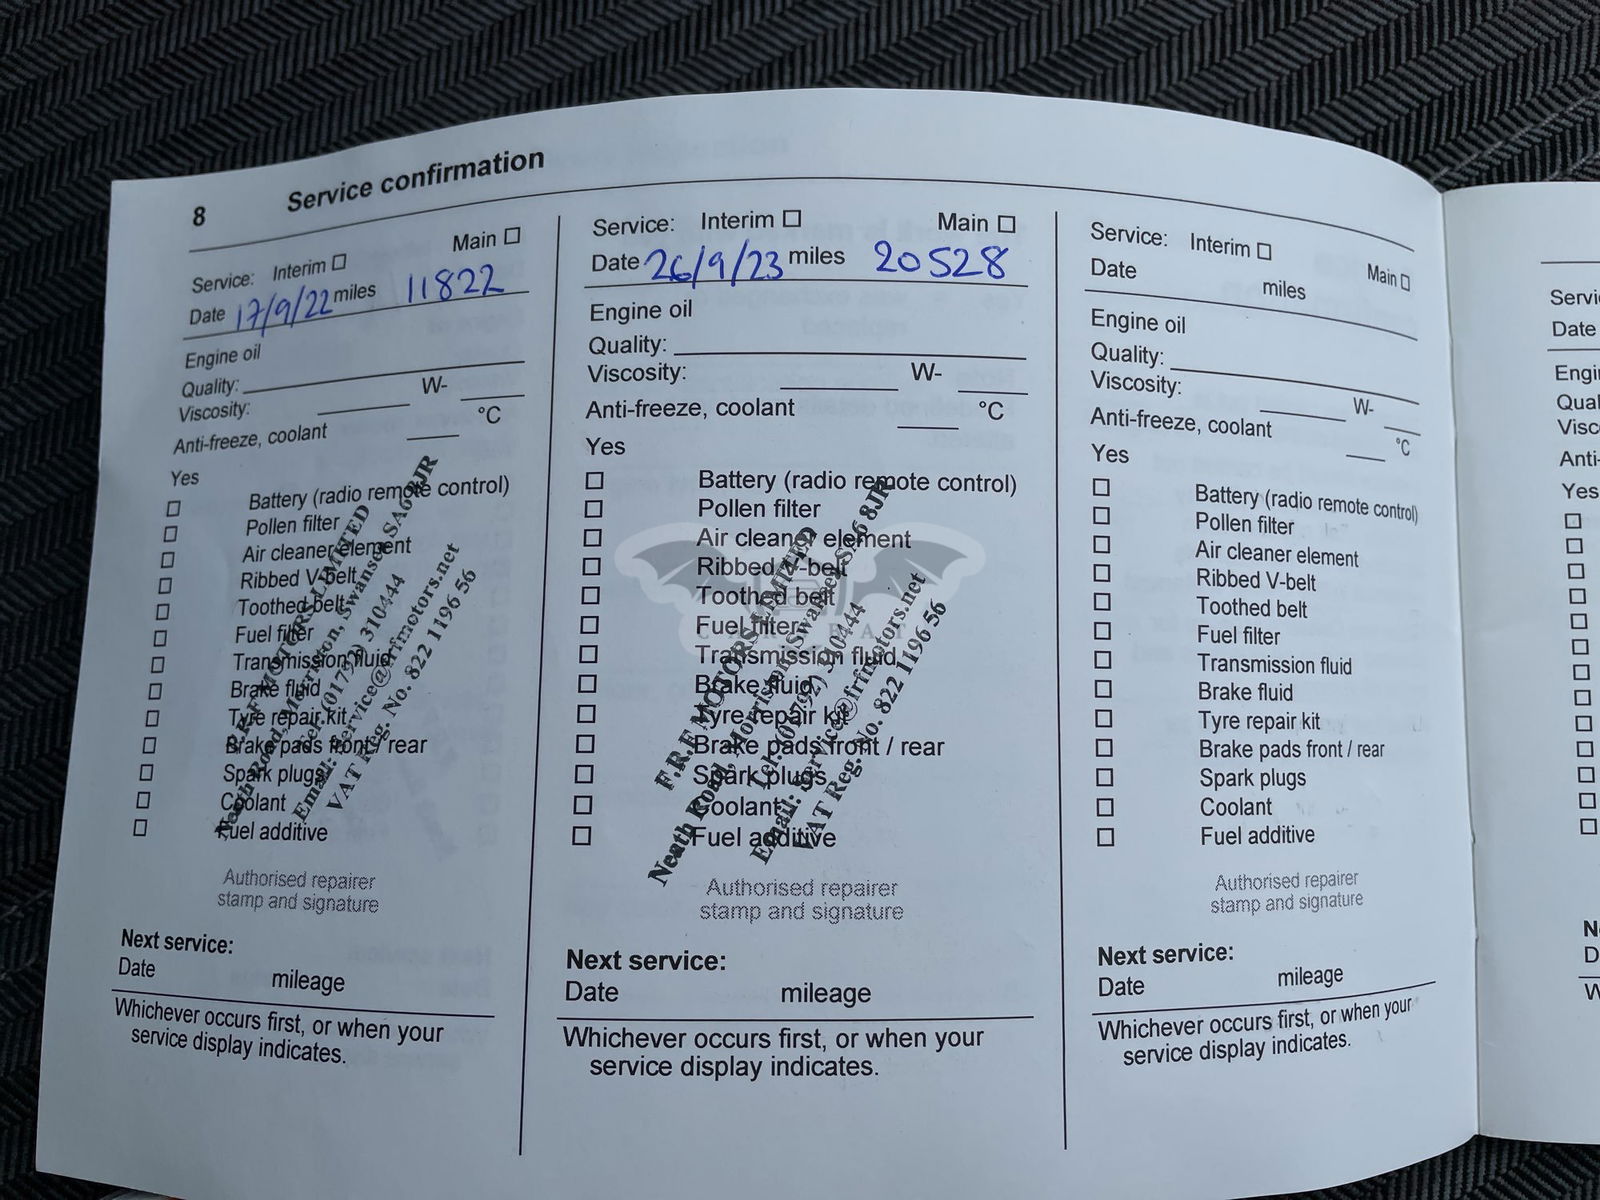 8 Service confirmation
Service: Interim Main
Date 17/9/22 miles 11822
Engine oil
Quality:
Viscosity: W-
Anti-freeze, coolant °C
Yes
Battery (radio remote control)
Pollen filter
Air cleaner element
Ribbed V-belt
Toothed belt
Fuel filter
Transmission fluid
Brake fluid
Tyre repair kit
Brake pads front / rear
Spark plugs
Coolant
Fuel additive
F.R.F MOTORS LIMITED
Neath Road, Morriston, Swansea SA6 8JR
Tel: (01792) 310444
Email: Service@frfmotors.net
VAT Reg. No. 822 1196 56
Authorised repairer
stamp and signature
Next service:
Date mileage
Whichever occurs first, or when your
service display indicates.
Service: Interim Main
Date 26/9/23 miles 20528
Engine oil
Quality:
Viscosity: W-
Anti-freeze, coolant °C
Yes
Battery (radio remote control)
Pollen filter
Air cleaner element
Ribbed V-belt
Toothed belt
Fuel filter
Transmission fluid
Brake fluid
Tyre repair kit
Brake pads front / rear
Spark plugs
Coolant
Fuel additive
F.R.F MOTORS LIMITED
Neath Road, Morriston, Swansea SA6 8JR
Tel: (01792) 310444
Email: Service@frfmotors.net
VAT Reg. No. 822 1196 56
Authorised repairer
stamp and signature
Next service:
Date mileage
Whichever occurs first, or when your
service display indicates.
Service: Interim Main
Date miles
Engine oil
Quality:
Viscosity: W-
Anti-freeze, coolant °C
Yes
Battery (radio remote control)
Pollen filter
Air cleaner element
Ribbed V-belt
Toothed belt
Fuel filter
Transmission fluid
Brake fluid
Tyre repair kit
Brake pads front / rear
Spark plugs
Coolant
Fuel additive
Authorised repairer
stamp and signature
Next service:
Date mileage
Whichever occurs first, or when your
service display indicates.
Date
Yes